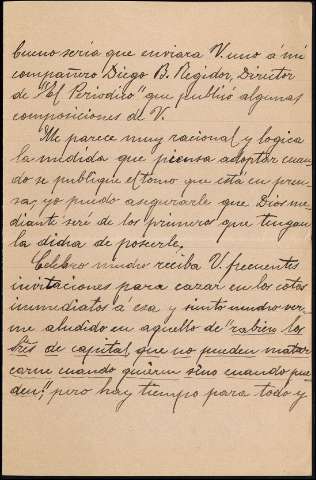 bueno seria que enviara V. uno á mi
compañero Diego B. Regidor, Director
de "El Periodico" que publió algunas
composiciones de V.
Me parece muy racional y logica
la medida que piensa adoptar cuan-
do se publique el tomo que está en pren-
sa, yo puedo asegurarle que Dios me-
diante seré de los primeros que tengan
la dicha de poseerle.
Celebro mucho reciba V. frecuentes
invitaciones para cazar en los cotos
inmediatos á esa y siento mucho ver-
me aludido en aquello de "rabien los
Sres de capital que no pueden matar
carne cuando quieren sino cuando pue-
den." pero hay tiempo para todo y